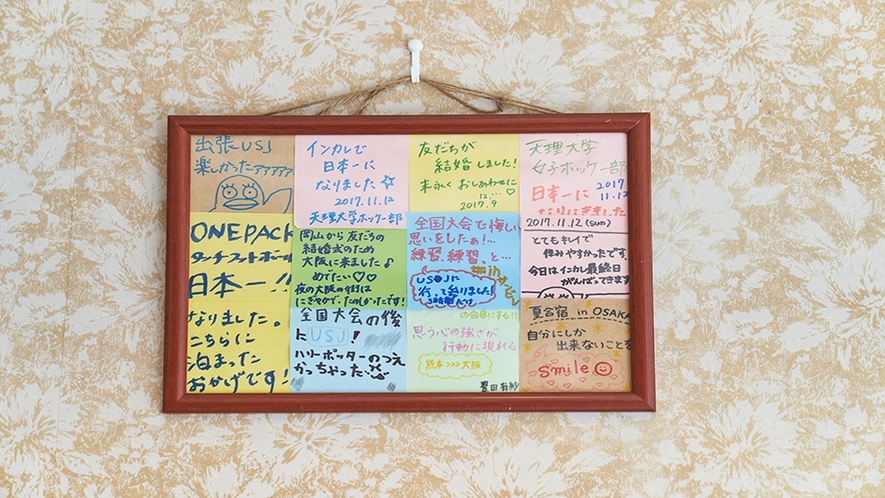 出張USJ
楽しかったァァァァァ
インカレで
日本一に
なりました☆
2017.11.12
天理大学ホッケー部
友だちが
結婚しました!
末永く おしあわせに
2017.9
天理大学
女子ホッケー部
日本一に 2017
11.12
なりにきました
2017.11.12 (sun)
とてもキレイで
住みやすかったです
今日はインカレ最終日
がんばってきます
ONEPACK
タッチフットボール
日本一!!
なりました。
こちらに
泊まった
おかげです!
岡山から友だちの
結婚式のため
大阪に来ました♪
めでたい♡♡
夜の大阪の街は
にぎやかで、たのしかったです!
全国大会で悔しい
思いをしたぁ!…
練習、練習、と…
USJに
行って参りました!
全国大会の後
にUSJ!
ハリーポッターのつえ
かっちゃった
の合宿にする!!
思う心の強さが
行動に現れる
熊本>>>大阪
豊田有紗
夏合宿 in OSAKA
自分にしか
出来ないことを
smile